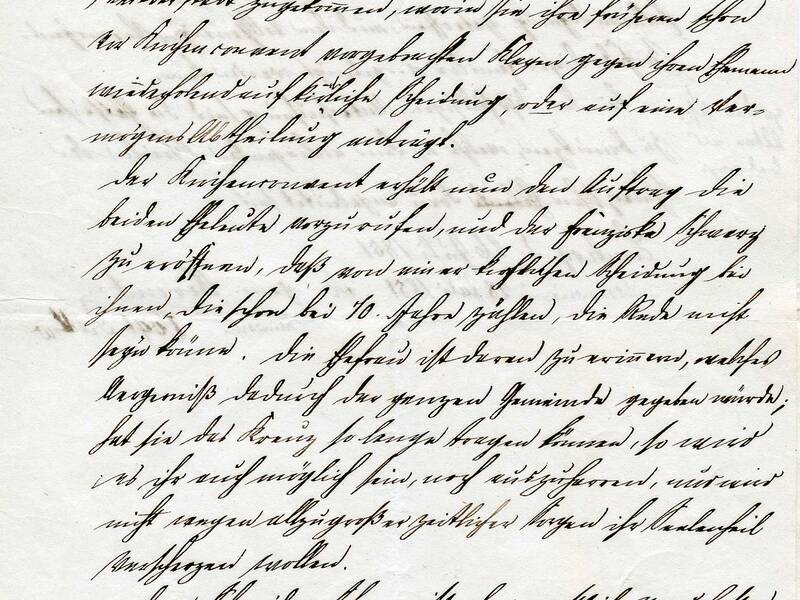 zugekommen, worin sie ihre früheren schon
im Kirchenconvent vorgebrachten Klagen gegen ihren Ehemann
wiederholend auf kirchliche Scheidung, oder auf eine Ver-
mögens Abtheilung anträgt.
Der Kirchenconvent erhält nun den Auftrag die
beiden Eheleute vorzurufen, und der Franziska Schwarz
zu eröffnen, daß von einer kirchlichen Scheidung bei
ihnen, die schon bei 70. Jahre zählen, die Rede nicht
seyn könne. Die Ehefrau ist daran zu erinnern, welches
Aergerniß dadurch der ganzen Gemeinde gegeben würde;
hat sie das Kreuz so lange tragen können, so wird
es ihr auch möglich sein, noch auszuharren, und wird
nicht wegen allzugroßer zeitlicher Sorgen ihr Seelenheil
verscherzen wollen.